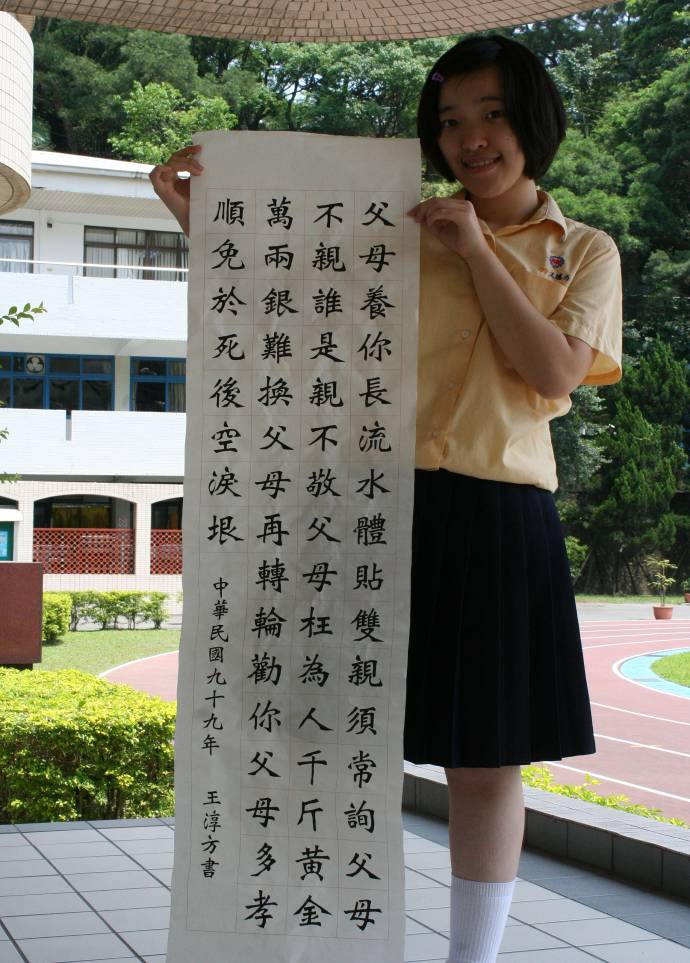 父母養你長流水體貼雙親須常詢父母
不親誰是親不敬父母枉為人千斤黃金
萬兩銀難換父母再轉輪勸你父母多孝
順免於死後空淚垠
中華民國九十九年 王淳方書